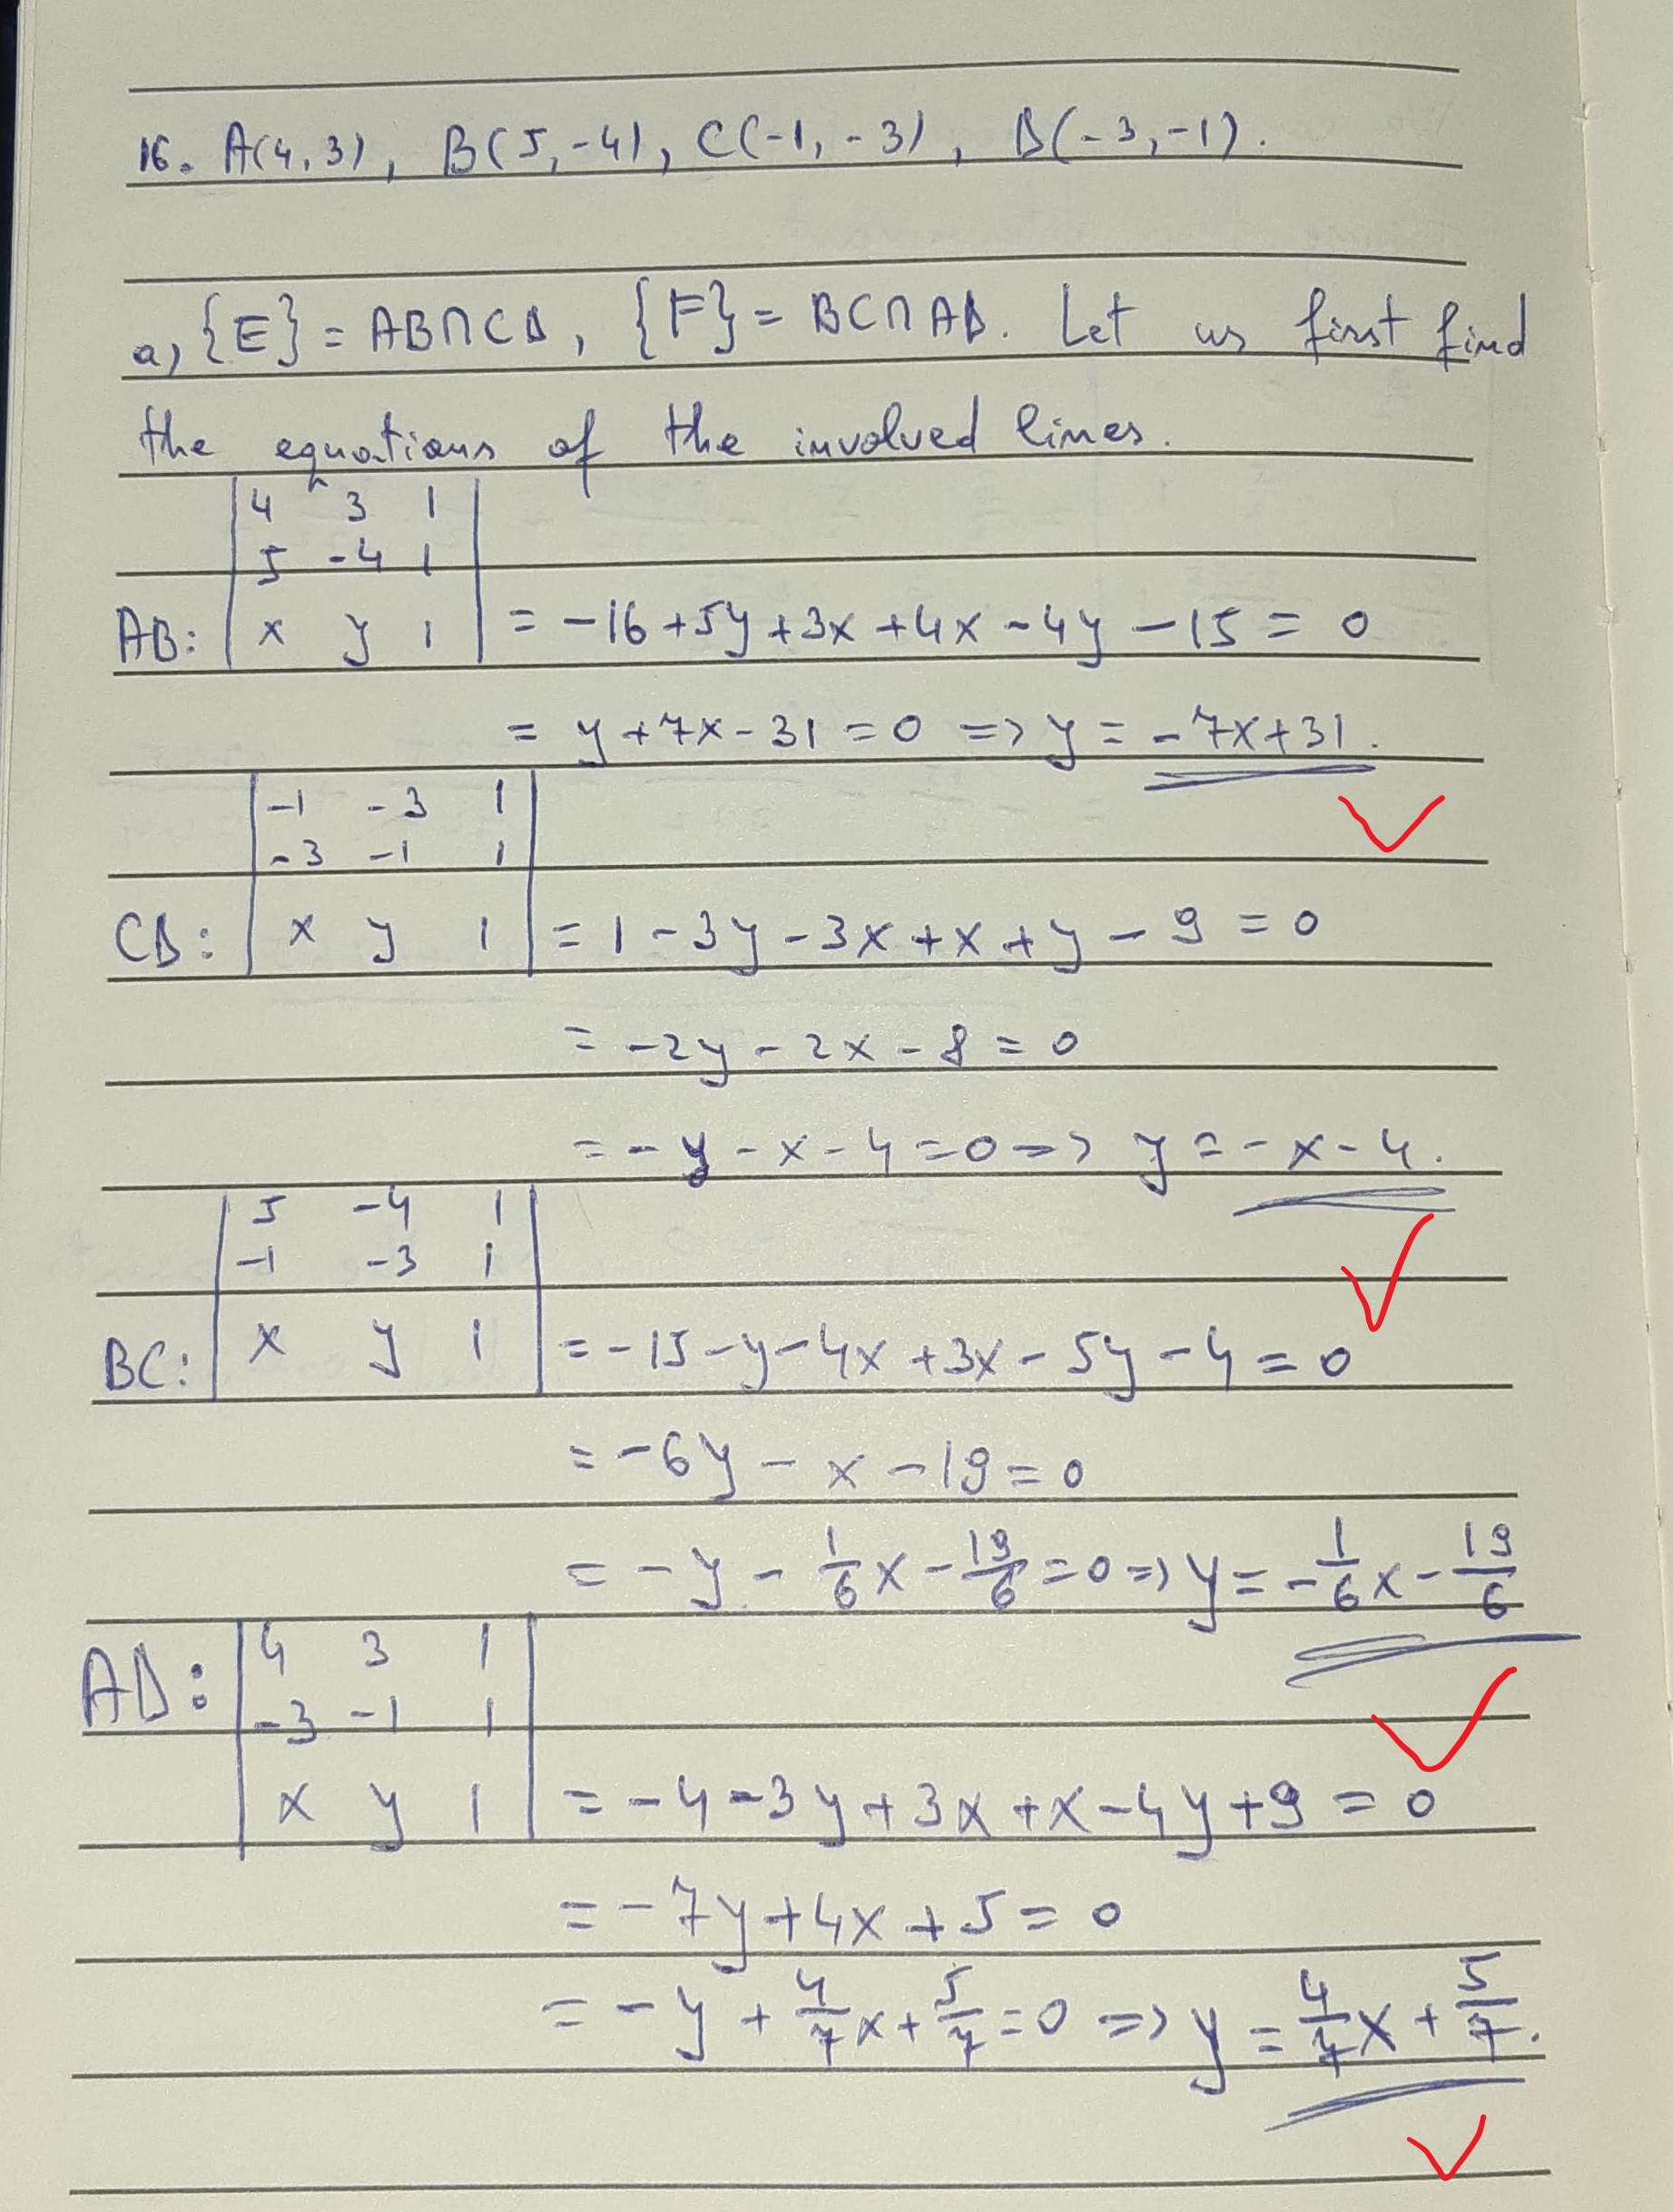 16. A(4,3), B(5,-4), C(-1,-3), D(-3,-1).
a, {E} = AB∩CD, {F} = BC∩AD. Let us first find
the equations of the involved lines.
4 3 1
5 -4 1
AB: | x y 1 | = -16+5y+3x+4x-4y-15 = 0
= y+7x-31 = 0 => y = -7x+31.
-1 -3 1
-3 -1 1
CD: | x y 1 | = 1-3y-3x+x+y-9 = 0
= -2y-2x-8 = 0
= -y-x-4=0 => y = -x-4.
5 -4 1
-1 -3 1
BC: | x y 1 | = -15-y-4x+3x-5y-4 = 0
= -6y-x-19 = 0
= -y - 1/6 x - 19/6 = 0 => y = -1/6 x - 19/6
AD: | 4 3 1
-3 -1 1
x y 1 | = -4-3y+3x+x-4y+9 = 0
= -7y+4x+5 = 0
= -y + 4/7 x + 5/7 = 0 => y = 4/7 x + 5/7.